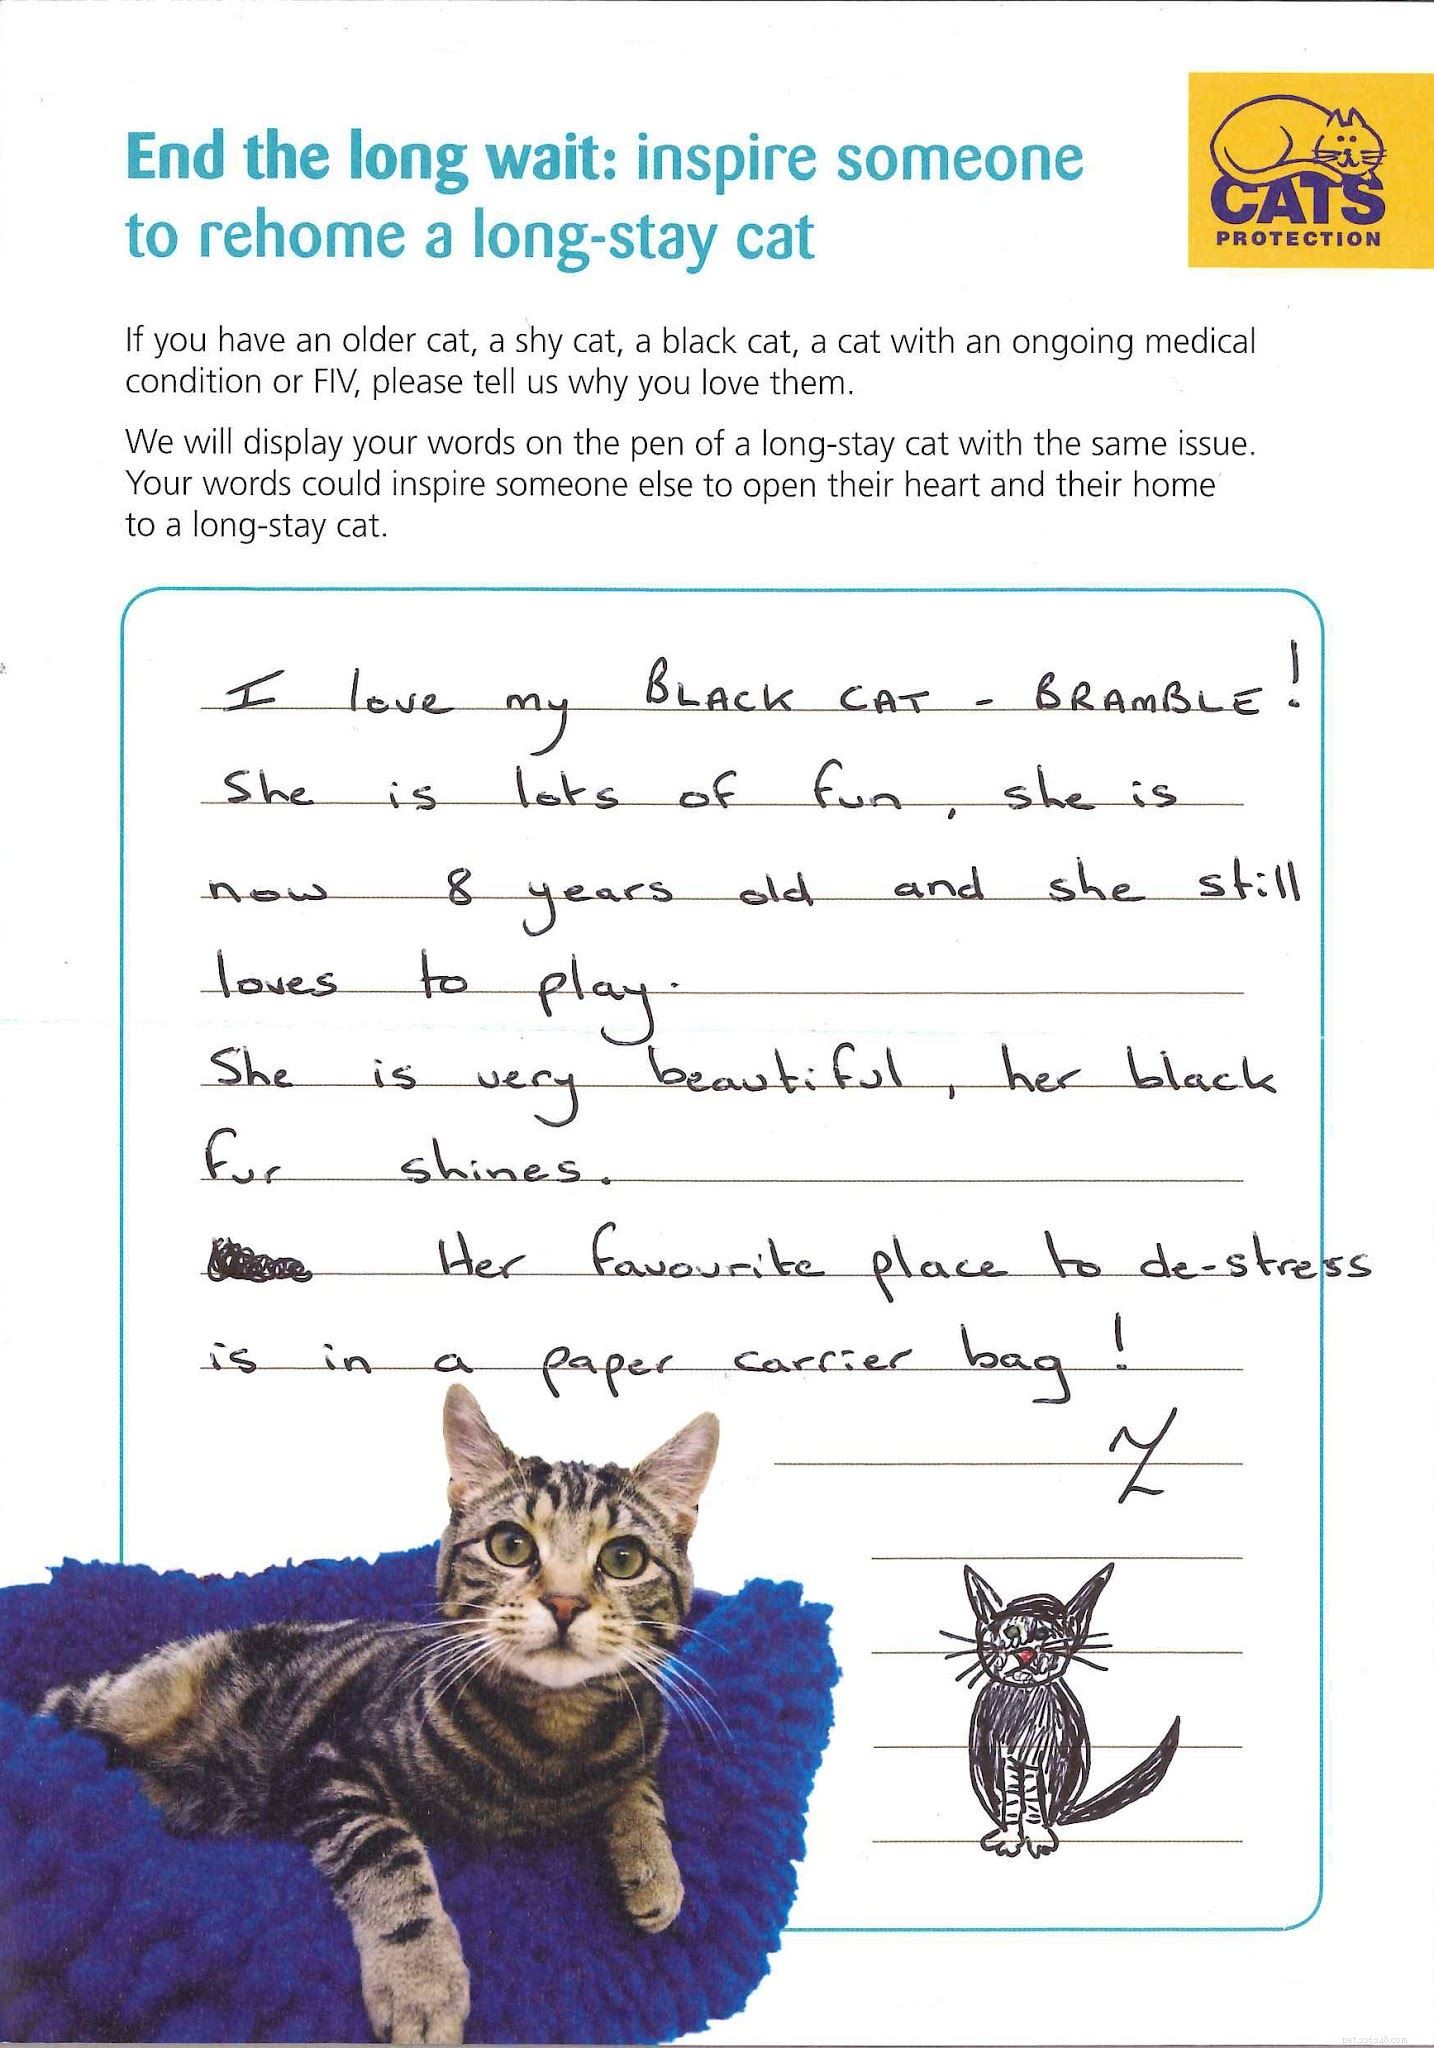 End the long wait: inspire someone
to rehome a long-stay cat
CATS
PROTECTION
If you have an older cat, a shy cat, a black cat, a cat with an ongoing medical
condition or FIV, please tell us why you love them.
We will display your words on the pen of a long-stay cat with the same issue.
Your words could inspire someone else to open their heart and their home
to a long-stay cat.
I love my BLACK CAT - BRAMBLE!
She is lots of fun, she is
now 8 years old and she still
loves to play.
She is very beautiful, her black
fur shines.
Her favourite place to de-stress
is in a paper carrier bag!
pet.226248.com